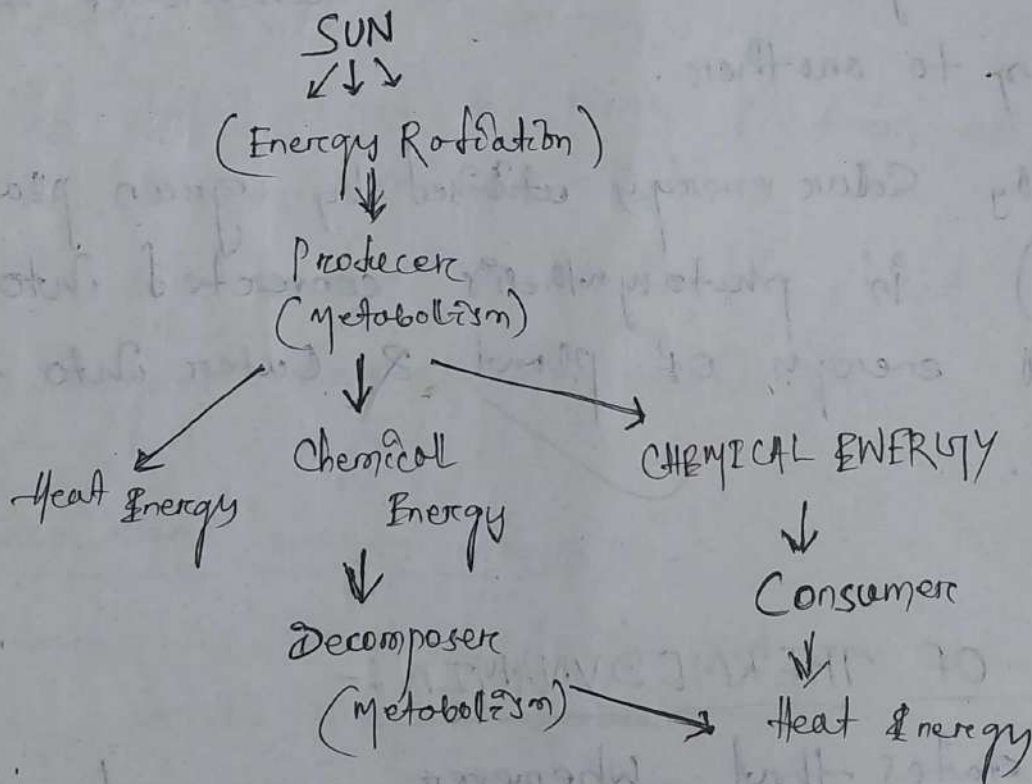 SUN
(Energy Radiation)
Producer
(Metabolism)
Heat Energy
Chemical
Energy
CHEMICAL ENERGY
Consumer
Decomposer
(Metabolism)
Heat Energy